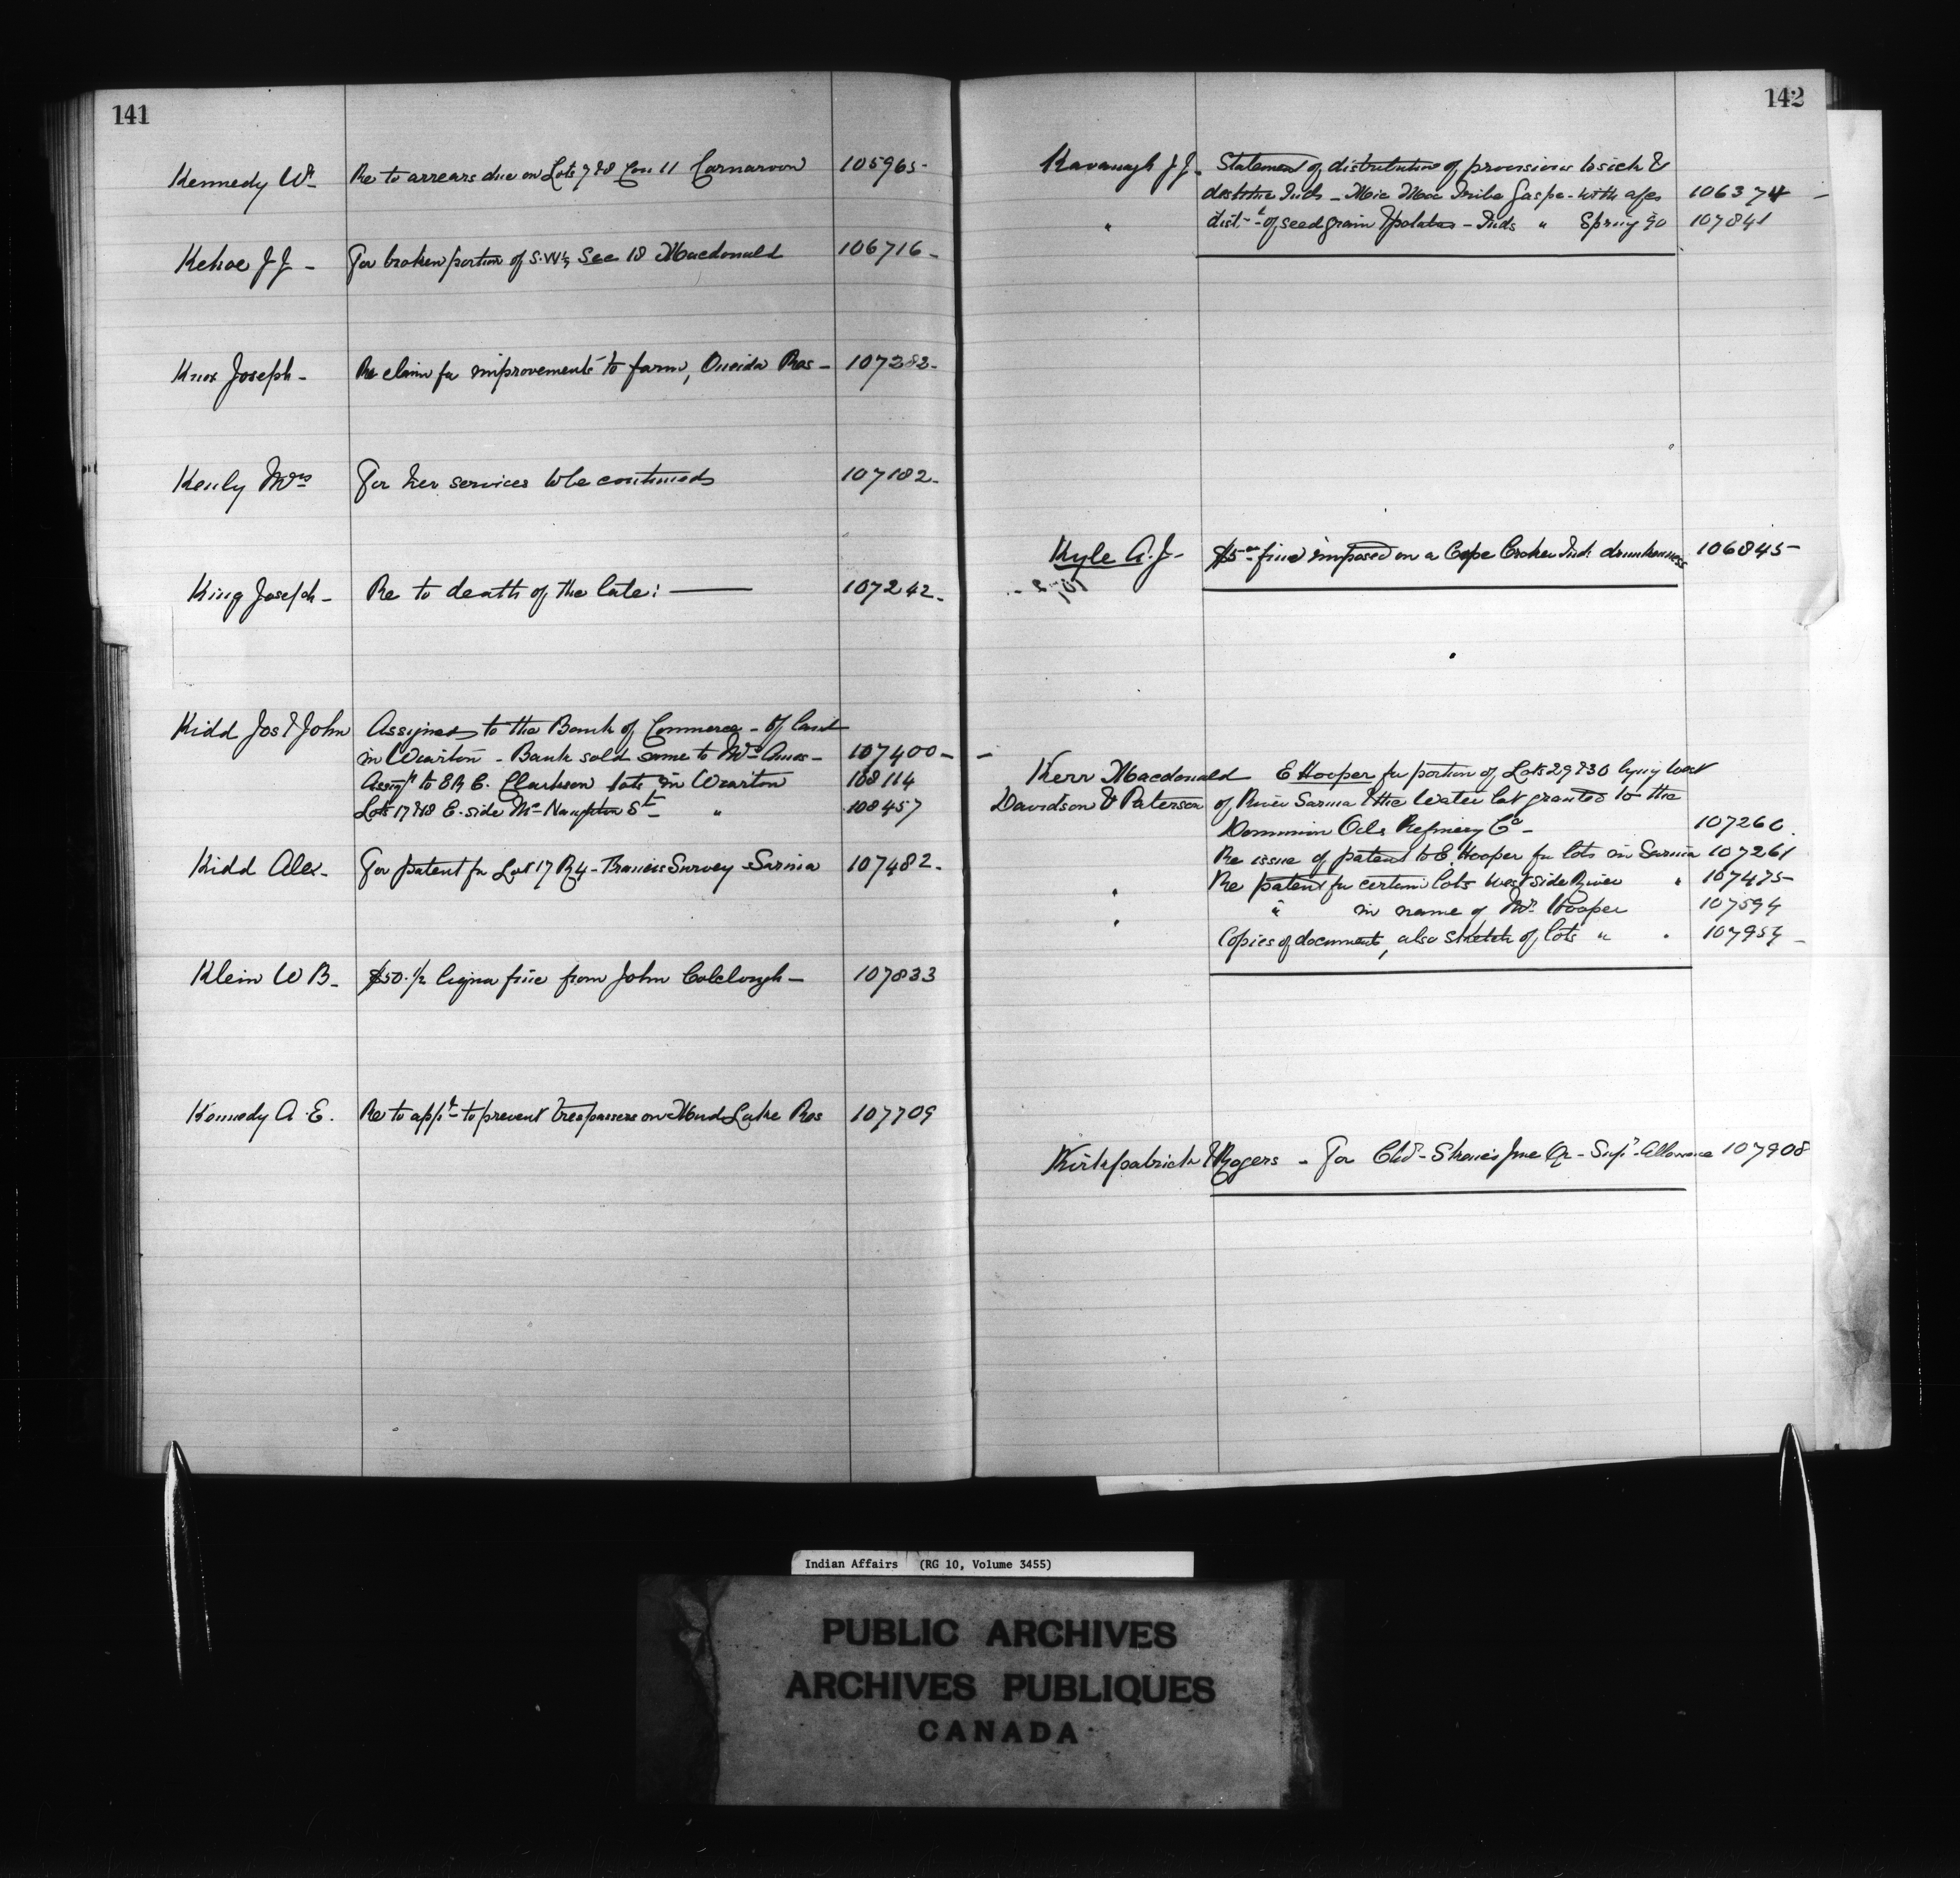 141
Kennedy Wm Re to arrears due on Lots 7 & 8 Con 11 Carnarvon 105965-
Kehoe J J - For broken portion of S.W¼ Sec 18 Macdonald 106716-
Knox Joseph - Re claim for improvements to farm, Oneida Res - 107282-
Kenly Mrs For her services to be continued 107182-
King Joseph - Re to death of the late: 107242-
Kidd Jos & John Assigned to the Bank of Commerce - of land
in Wiarton - Bank sold same to Mrs Amos - 107400-
Assigt to E R C. Clarkson lots in Wiarton 108114
Lots 17 & 18 E. side St " 108457
Kidd Alex - For patent for Lot 17 R 4 - Francis Survey - Sarnia 107482-
Klein W B - $50. ½ liquor fine from John Colclough - 107833
Kennedy A. E. Re to appt to prevent trespassers on Mud Lake Res 107709
142
Kavanagh J J - Statement of distribution of provisions to sick &
destitute Inds - Mic Mac Tribe Gaspe - with ages 106374 -
" dist. of seed grain & potatoes - Inds " Spring 90 107841
Kyle A. J - $5.00 fine imposed on a Cape Croker Ind. drunkenness 106845-
Kerr Macdonald E Hooper for portion of Lots 29 & 30 lying West
Davidson & Paterson of River Sarnia & the Water lot granted to the
Dominion Oils Refinery Co - 107260
Re issue of patent to E. Hooper for lots in Sarnia 107261
" Re patent for certain lots West side River " 107475-
" " in name of Mr Hooper 107594
Copies of documents, also sketch of lots " " 107957 -
Kirkpatrick & Rogers - For June Qr - Supt Allowance 107908
Indian Affairs (RG 10, Volume 3455)
PUBLIC ARCHIVES
ARCHIVES PUBLIQUES
CANADA